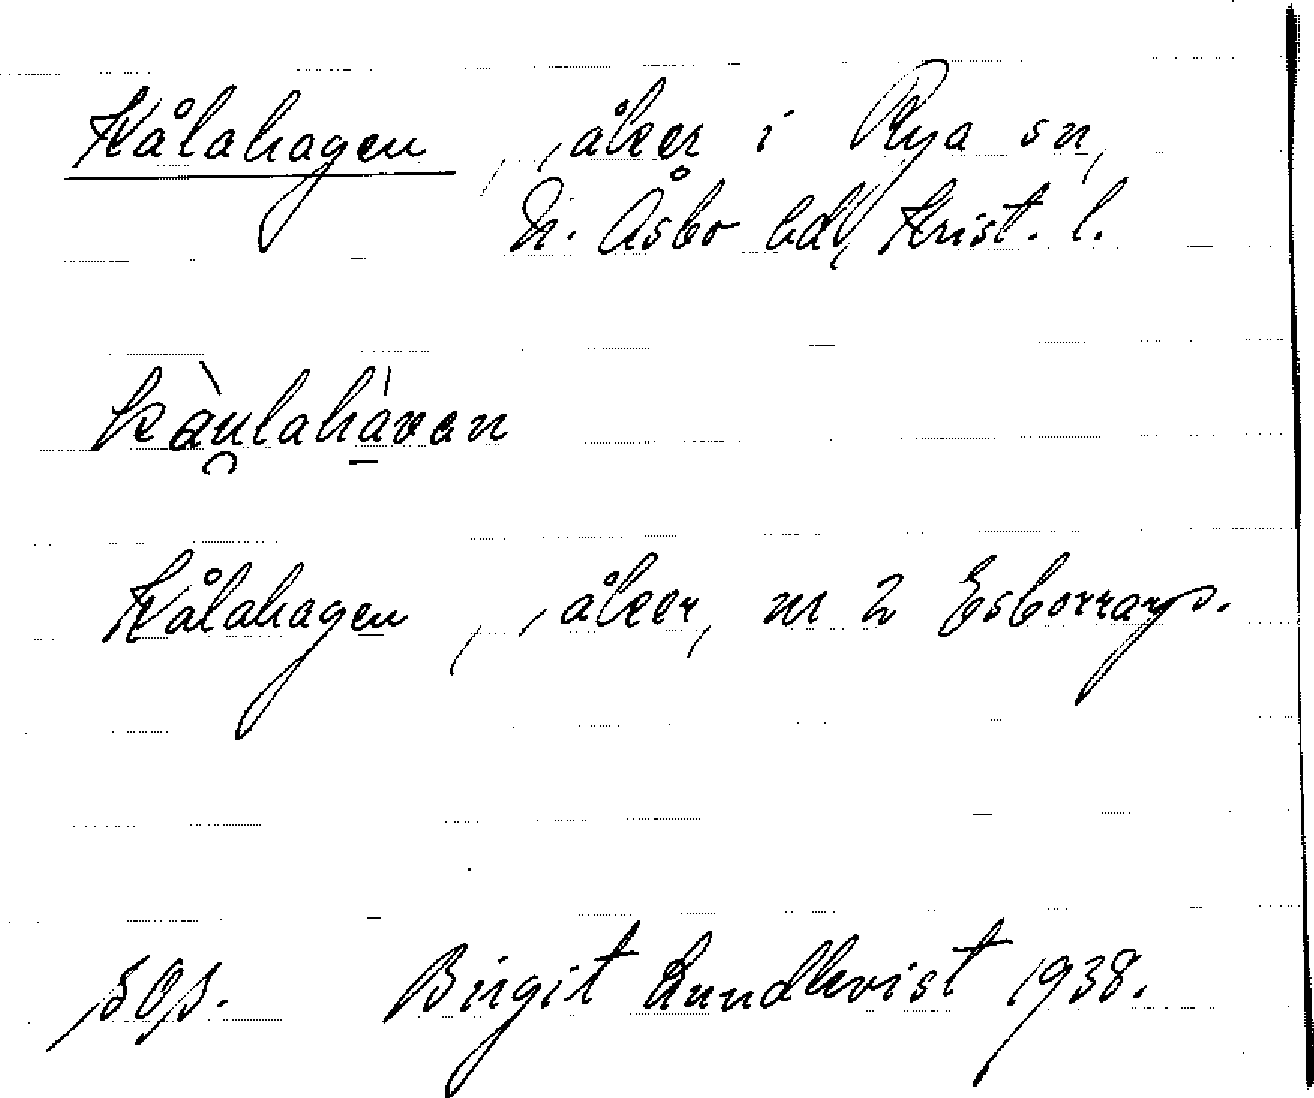 Kålahagen, åker i Rya sn,
N. Åsbo hd, Krist. l.
kàu̯lahá̠van
Kålahagen, åker, nr 2 Esborrarp.
Birgit Lundkvist 1938.